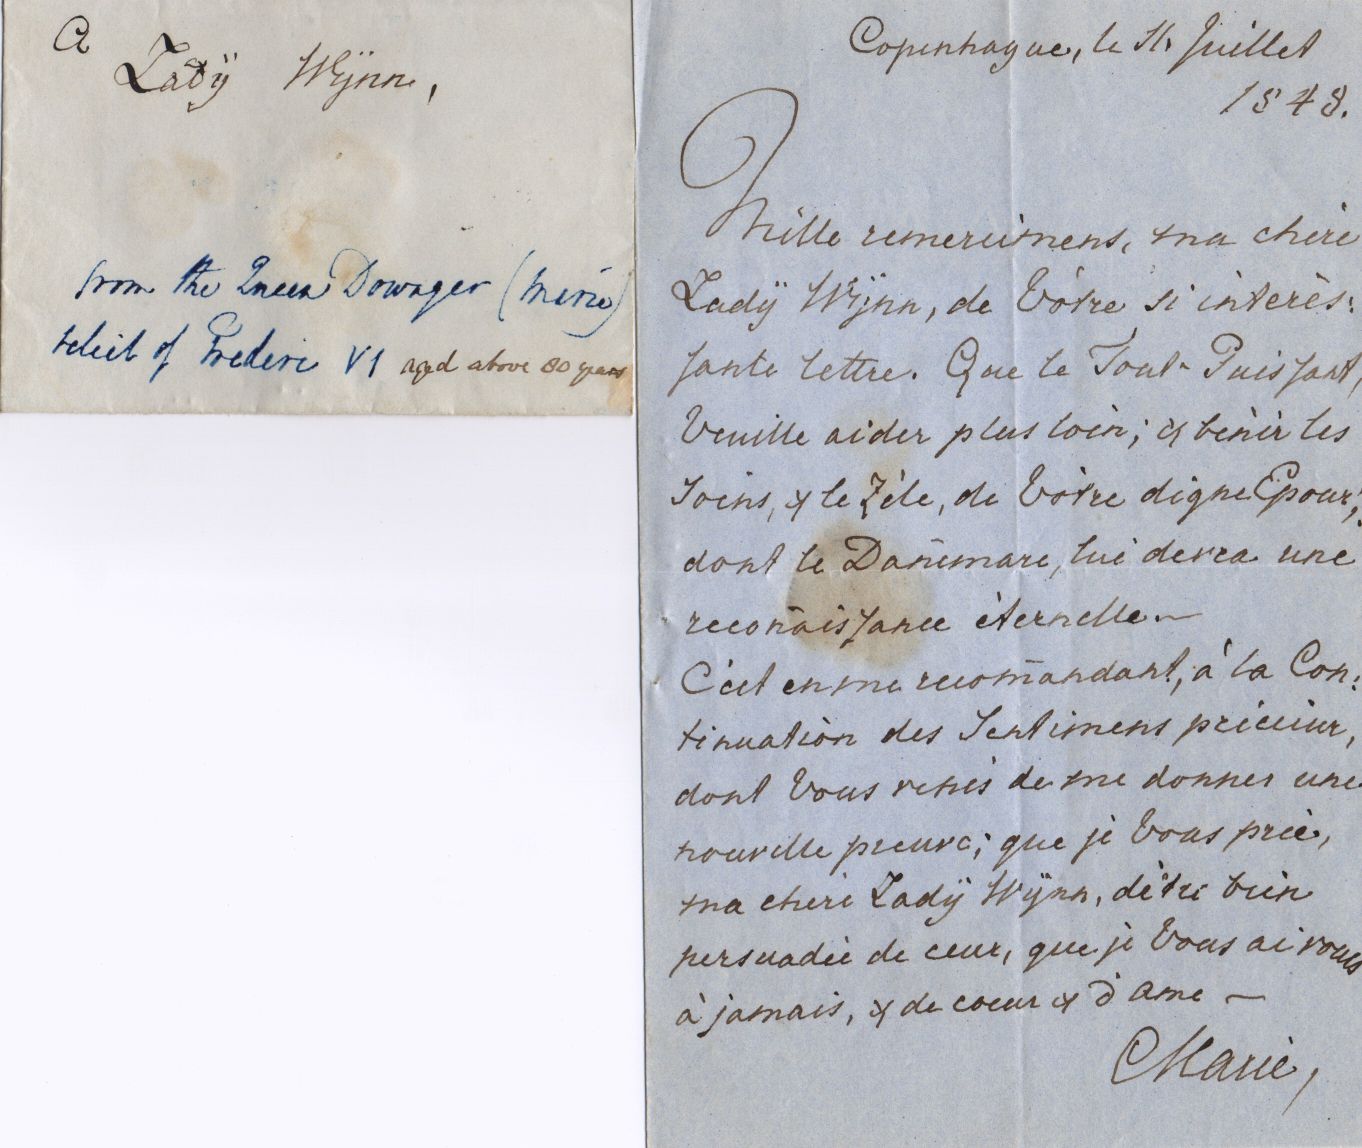 A
Ladÿ Wÿnn,
from the Queen Dowager (Marie)
relict of Frederic VI aged above 80 years
Copenhague, le 11, Juillet
1848.
Mille remercimens, ma chère
Ladÿ Wÿnn, de Vôtre si intérès:
sante lettre. Que le Tout-Puissant,
Veuille aider plus loin; & bénir les
soins, & le Zéle, de Vôtre digne Epoux;
dont le Dan̄emarc, lui devra une
recon̄aissance éternelle.—
C'est en me recom̄andant, à la Con:
tinuation des Sentimens précieux,
dont Vous venés de me donner une
nouvelle preuve; que je Vous prie,
ma chere Ladÿ Wÿnn, d'être bien
persuadée de ceux, que je Vous ai voués
à jamais, & de coeur & d'ame —
Marie,